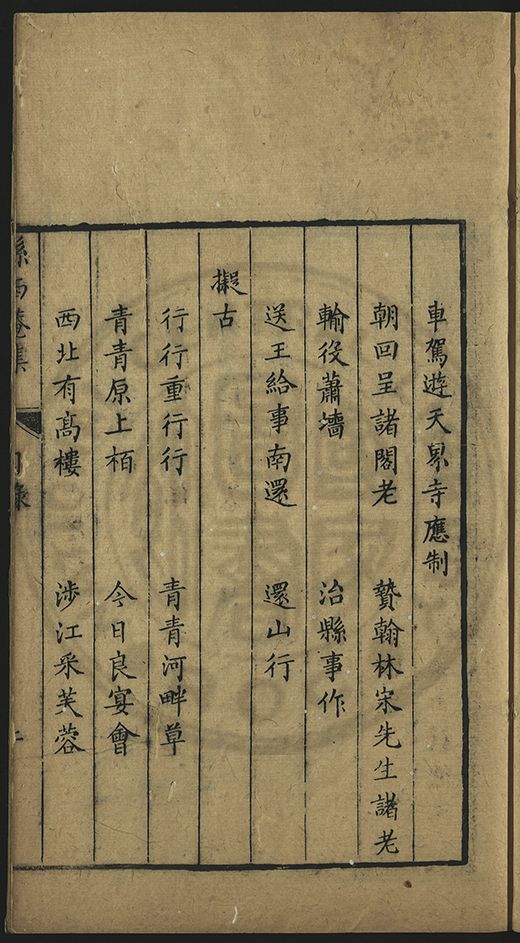 車駕遊天界寺應制
朝回呈諸閣老　贄翰林宋先生諸老
輸役蕭濇　治縣事作
送王給事南還　還山行
擬古
行行重行行　青青河畔草
青青原上栢　今日良宴會
西北有髙樓　涉江采芙蓉
西菴集
目錄